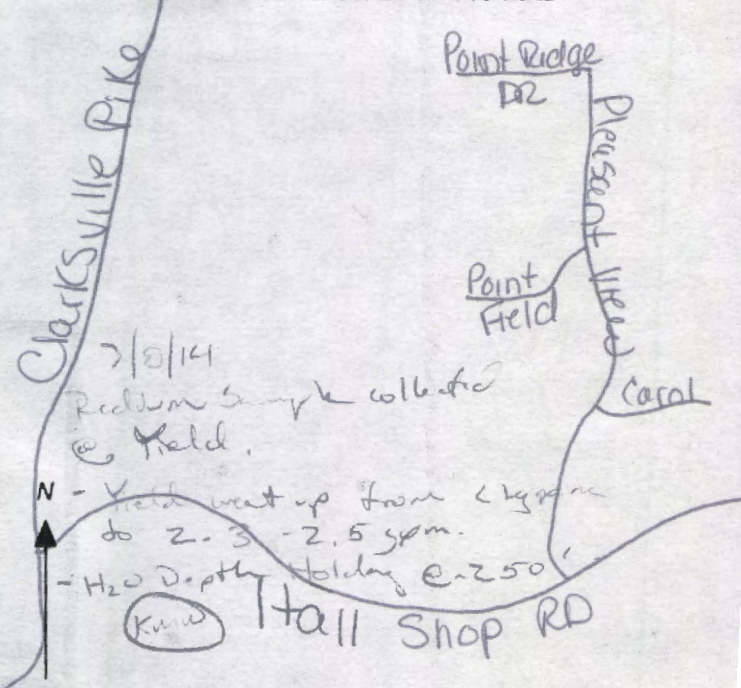 Clarksville Pike
Point Ridge
DR
Pleasant View
Point
Field
Carol
7/8/14
Radium Sample collected
@ Yield.
N
- Yield went up from <1gpm
to 2.3 - 2.5 gpm.
- H2O Depth Holding @ ~250'
Hall Shop RD